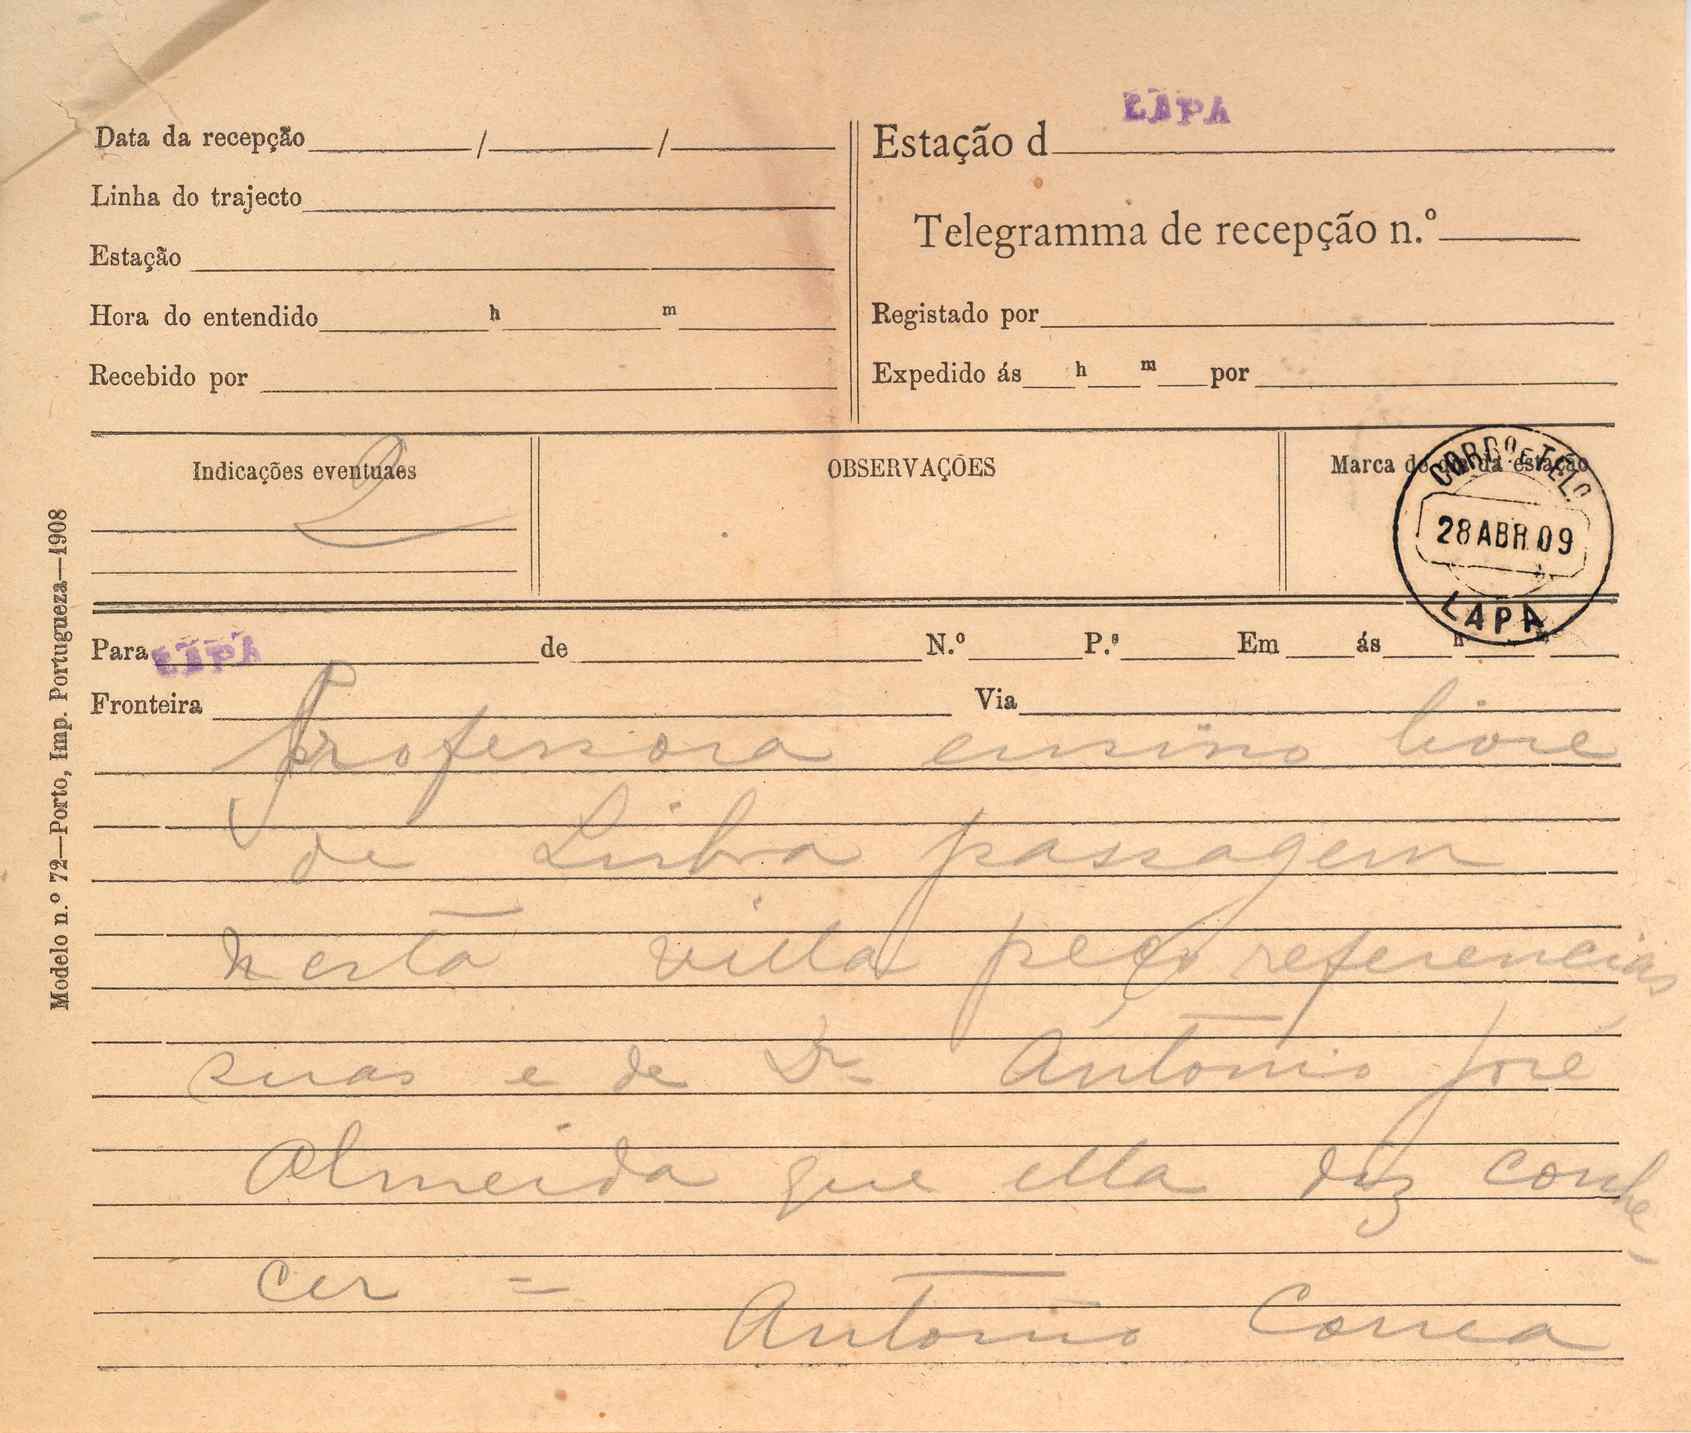 LAPA
Data da recepção / /
Estação d
Linha do trajecto
Telegramma de recepção n.º
Estação
Hora do entendido h m
Registado por
Recebido por
Expedido ás h m por
Indicações eventuaes
2
OBSERVAÇÕES
Marca do dia da estação
CORRO E TEL.
28 ABR 09
LAPA
Para LAPA de N.º P.s Em ás h m
Fronteira Via
Professora ensino livre
de Lisboa passagem
nesta villa peço referencias
suas e de Dr Antonio José
Almeida que ella diz conhe-
cer =
Antonio Correa
Modelo n.º 72—Porto, Imp. Portugueza—1908